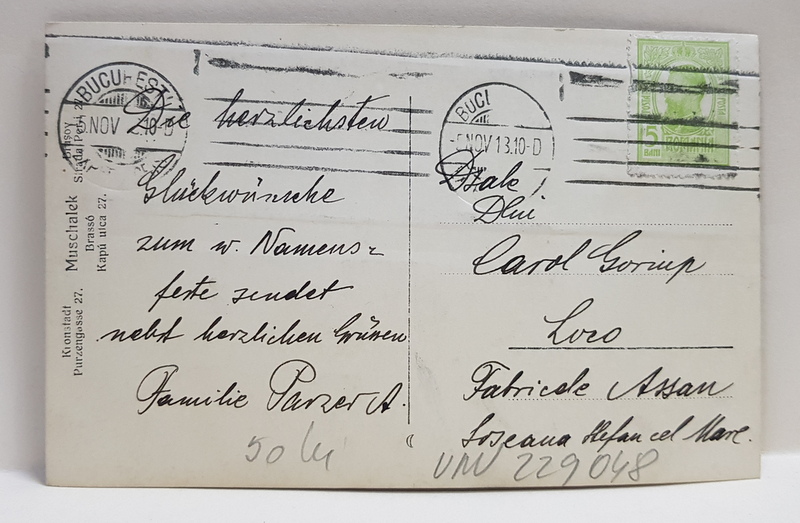 Kronstadt
Purzengasse 27.
Muschalek
Brassó
Kapú utca 27.
Brașov
Strada Porţii 27
BUCUREȘTI
5 NOV 10-D
Die herzlichsten
Glückwünsche
zum w. Namens=
feste sendet
nebst herzlichen Grüssen
Familie Parzer A.
50 lei
BUCU
5 NOV 13.10-D
5
BANI
ROMANIA
POSTA
Dlui
Carol Goriup
Loco
Fabricele Assan
Soseaua Stefan cel Mare.
229048